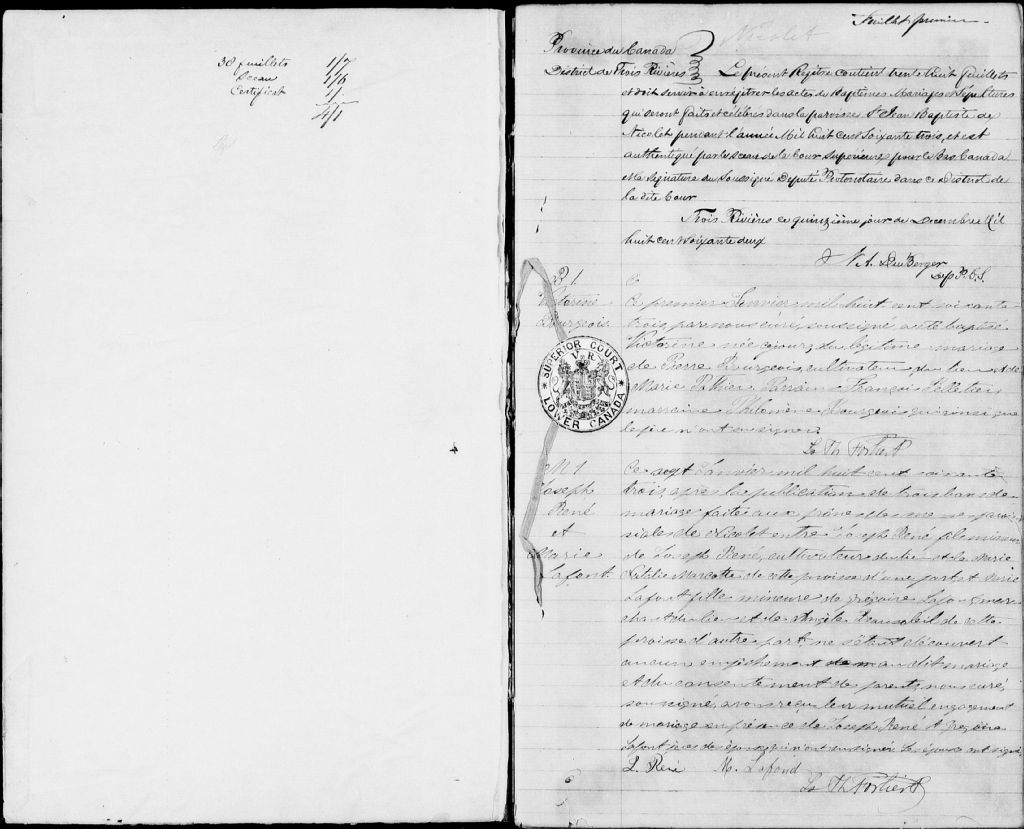 38 feuillets 1/7
Sceau 1/6
Certificat 1/
4/1
Feuillet premier
Nicolet
Province du Canada
District de Trois Rivières
Le présent Régistre contient trente huit feuillets
et doit servir à enrégistrer les actes de Baptêmes Mariages et Sépultures
qui seront faits et célébrés dans la paroisse St Jean Baptiste de
Nicolet pendant l'année Mil huit cent Soixante trois, et est
authentiqué par le sceau de la Cour Supérieure pour le Bas Canada
et la signature du Soussigné Député Protonotaire dans ce District de
la dite Cour
Trois Rivières ce quinzième jour de Décembre Mil
huit cent soixante deux
Dep P.C.S.
B 1.
Victorine
Bourgeois
SUPERIOR COURT
V R
LOWER CANADA
Ce premier Janvier mil huit cent soixante
trois, par nous curé, soussigné a été baptisé
Victorine née ce jour, du légitime mariage
de Pierre Bourgeois, cultivateur du lieu et de
Marie Parrain François Pelletier
marraine Philomène Bourgeois qui ainsi que
le père n'ont su signer.
Ls Th Fortier Ptr
M 1
Joseph
René
et
Marie
Lafont
Ce sept Janvier mil huit cent soixante
trois, après la publication de trois bans de
mariage faite aux prônes des messes parois-
siales de Nicolet entre Joseph René fils mineur
de Joseph René, cultivateur du lieu et de Marie
Marcotte de cette paroisse d'une part et Marie
Lafont fille mineure de Grégoire Lafont, mar-
chand du lieu et de Angèle de cette
paroisse d'autre part, ne s'étant découvert
aucun empêchement au dit mariage
et du consentement de parents, nous curé,
soussigné, avons reçu leur mutuel engagement
de mariage en présence de Joseph René et Grégoire
Lafont pères des époux qui n'ont su signer. Les époux ont signé
J. René M. Lafond
Ls Th Fortier Ptr